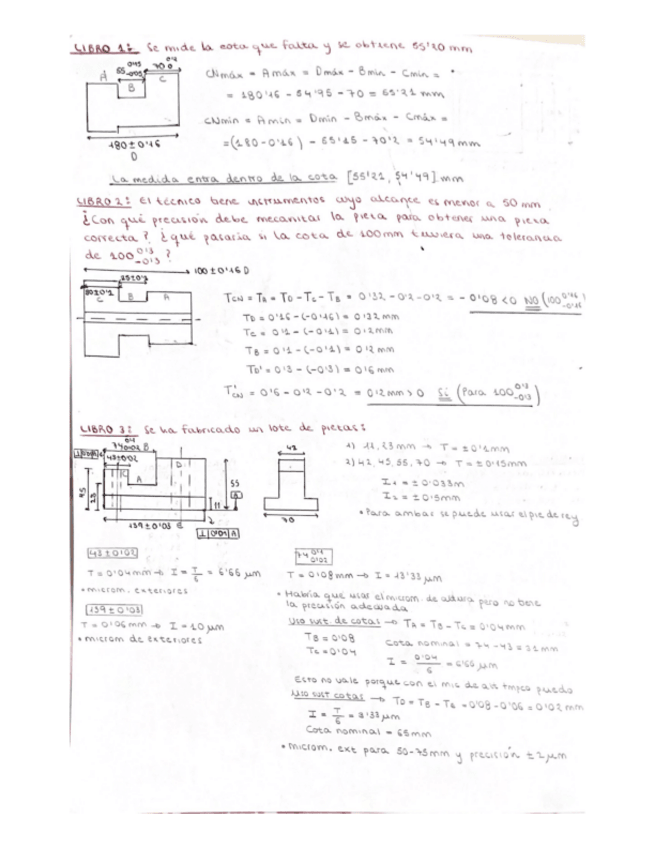 LIBRO 1: Se mide la cota que falta y se obtiene 55'20 mm
A
B
C
180±0'16
D
CNmáx = Amáx = Dmáx - Bmin - Cmin =
= 180'16 - 54'95 - 70 = 55'21 mm
CNmin = Amin = Dmin - Bmáx - Cmáx =
=(180-0'16) - 55'15 - 70'2 = 54'49mm
La medida entra dentro de la cota [55'21, 54'49] mm
LIBRO 2: El técnico tiene instrumentos cuyo alcance es menor a 50 mm.
¿Con qué precisión debe mecanizar la pieza para obtener una pieza
correcta? ¿Qué pasaría si la cota de 100mm tuviera una tolerancia
de 100 0'3 -0'3 ?
100±0'16 D
25±0'1
C
B
A
TCN = TA = TD - TC - TB = 0'32 - 0'2 - 0'2 = - 0'08 < 0 NO (100 0'16 -0'16
TD = 0'16 - (-0'16) = 0'32 mm
TC = 0'1 - (-0'1) = 0'2 mm
TB = 0'1 - (-0'1) = 0'2 mm
TD' = 0'3 - (-0'3) = 0'6 mm
T'CN = 0'6 - 0'2 - 0'2 = 0'2 mm > 0 Sí (Para 100 0'3 -0'3)
LIBRO 3: Se ha fabricado un lote de piezas:
B
43±0'02
C
A
D
45
23
55
A
11
139±0'03
0'04 A
42
70
1) 11, 23 mm → T = ±0'1mm
2) 42, 45, 55, 70 → T = ±0'15mm
I1 = ±0'033m
I2 = ±0'5mm
• Para ambas se puede usar el pie de rey
43±0'02
T = 0'04mm → I = T/6 = 6'66 μm
• microm. exteriores
139±0'03
T = 0'06mm → I = 10 μm
• microm de exteriores
T = 0'08mm → I = 13'33 μm
• Habría que usar el microm. de altura pero no tiene
la precisión adecuada
Uso sust. de cotas → TA = TB - TC = 0'04mm
TB = 0'08
TC = 0'04
Cota nominal = 74 - 43 = 31 mm
I = 0'04/6 = 6'66 μm
Esto no vale porque con el mic de alt tmpco puedo
Uso sust cotas → TD = TE - TB = 0'08 - 0'06 = 0'02 mm
I = T/6 = 3'33 μm
Cota nominal = 65mm
• microm. ext para 50-75mm y precisión ±2 μm